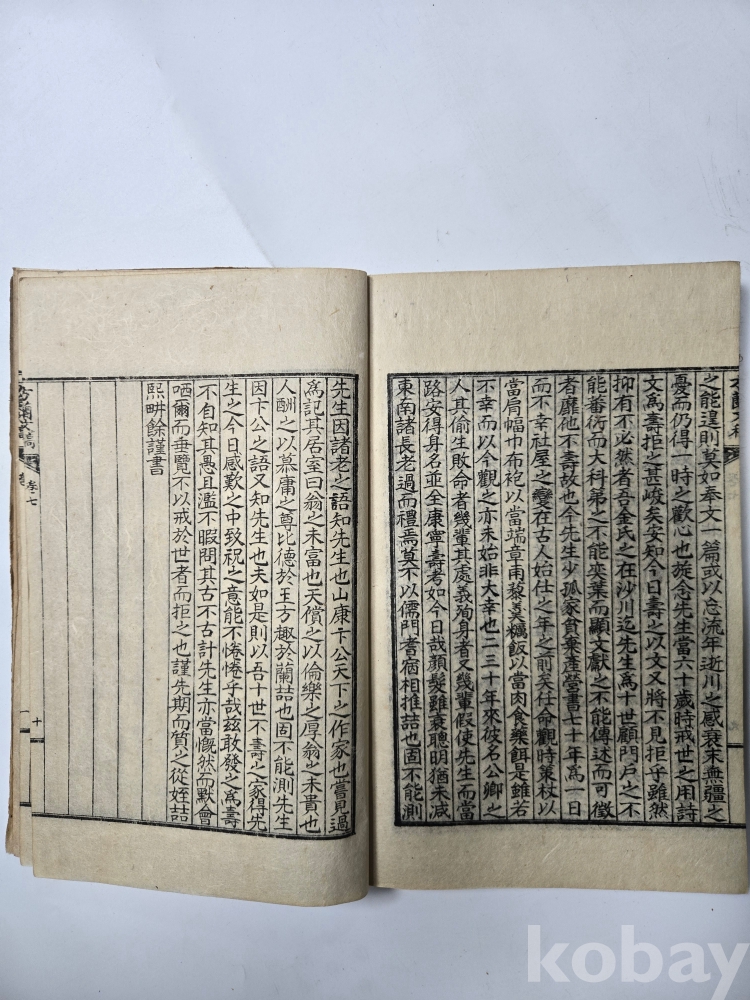 之能遑則莫如奉文一篇或以忘流年逝川之感衰末無疆之
憂而仍得一時之歡心也旋念先生當六十歲時戒世之用詩
文爲壽拒之甚峻矣安知今日壽之以文又將不見拒乎雖然
抑有不必然者吾金氏之在沙川迄先生爲十世顧門戶之不
能蕃衍而大科第之不能奕葉而顯文獻之不能傳述而可徵
者靡他不壽故也今先生少孤家貧棄產營書七十年爲一日
而不幸社屋之變在古人始仕之年之前矣任命觀時策杖以
當肩幅巾布袍以當端章甫藜羹糲飯以當肉食藥餌是雖若
不幸而以今觀之亦未始非大幸也二三十年來彼名公卿之
人其偷生敗命者幾輩其處義殉身者又幾輩假使先生而當
路安得身名並全康寧壽考如今日哉顏髮雖衰聰明猶未減
東南諸長老過而禮焉莫不以儒門耆宿相推喆也固不能測
先生因諸老之語知先生也山康卞公天下之作家也嘗見過
爲記其居室曰翁之未富也天償之以倫樂之厚翁之未貴也
人酬之以慕庸之尊比德於王方趣於蘭喆也固不能測先生
因卞公之語又知先生也夫如是則以吾十世不壽之家得先
生之今日感歎之中致祝之意能不惓惓乎哉茲敢發之爲壽
不自知其愚且濫不暇問其古不古計先生亦當慨然而默會
哂爾而垂覽不以戒於世者而拒之也謹先期而質之從姪喆
熙畊餘謹書
卷之七
十
kobay